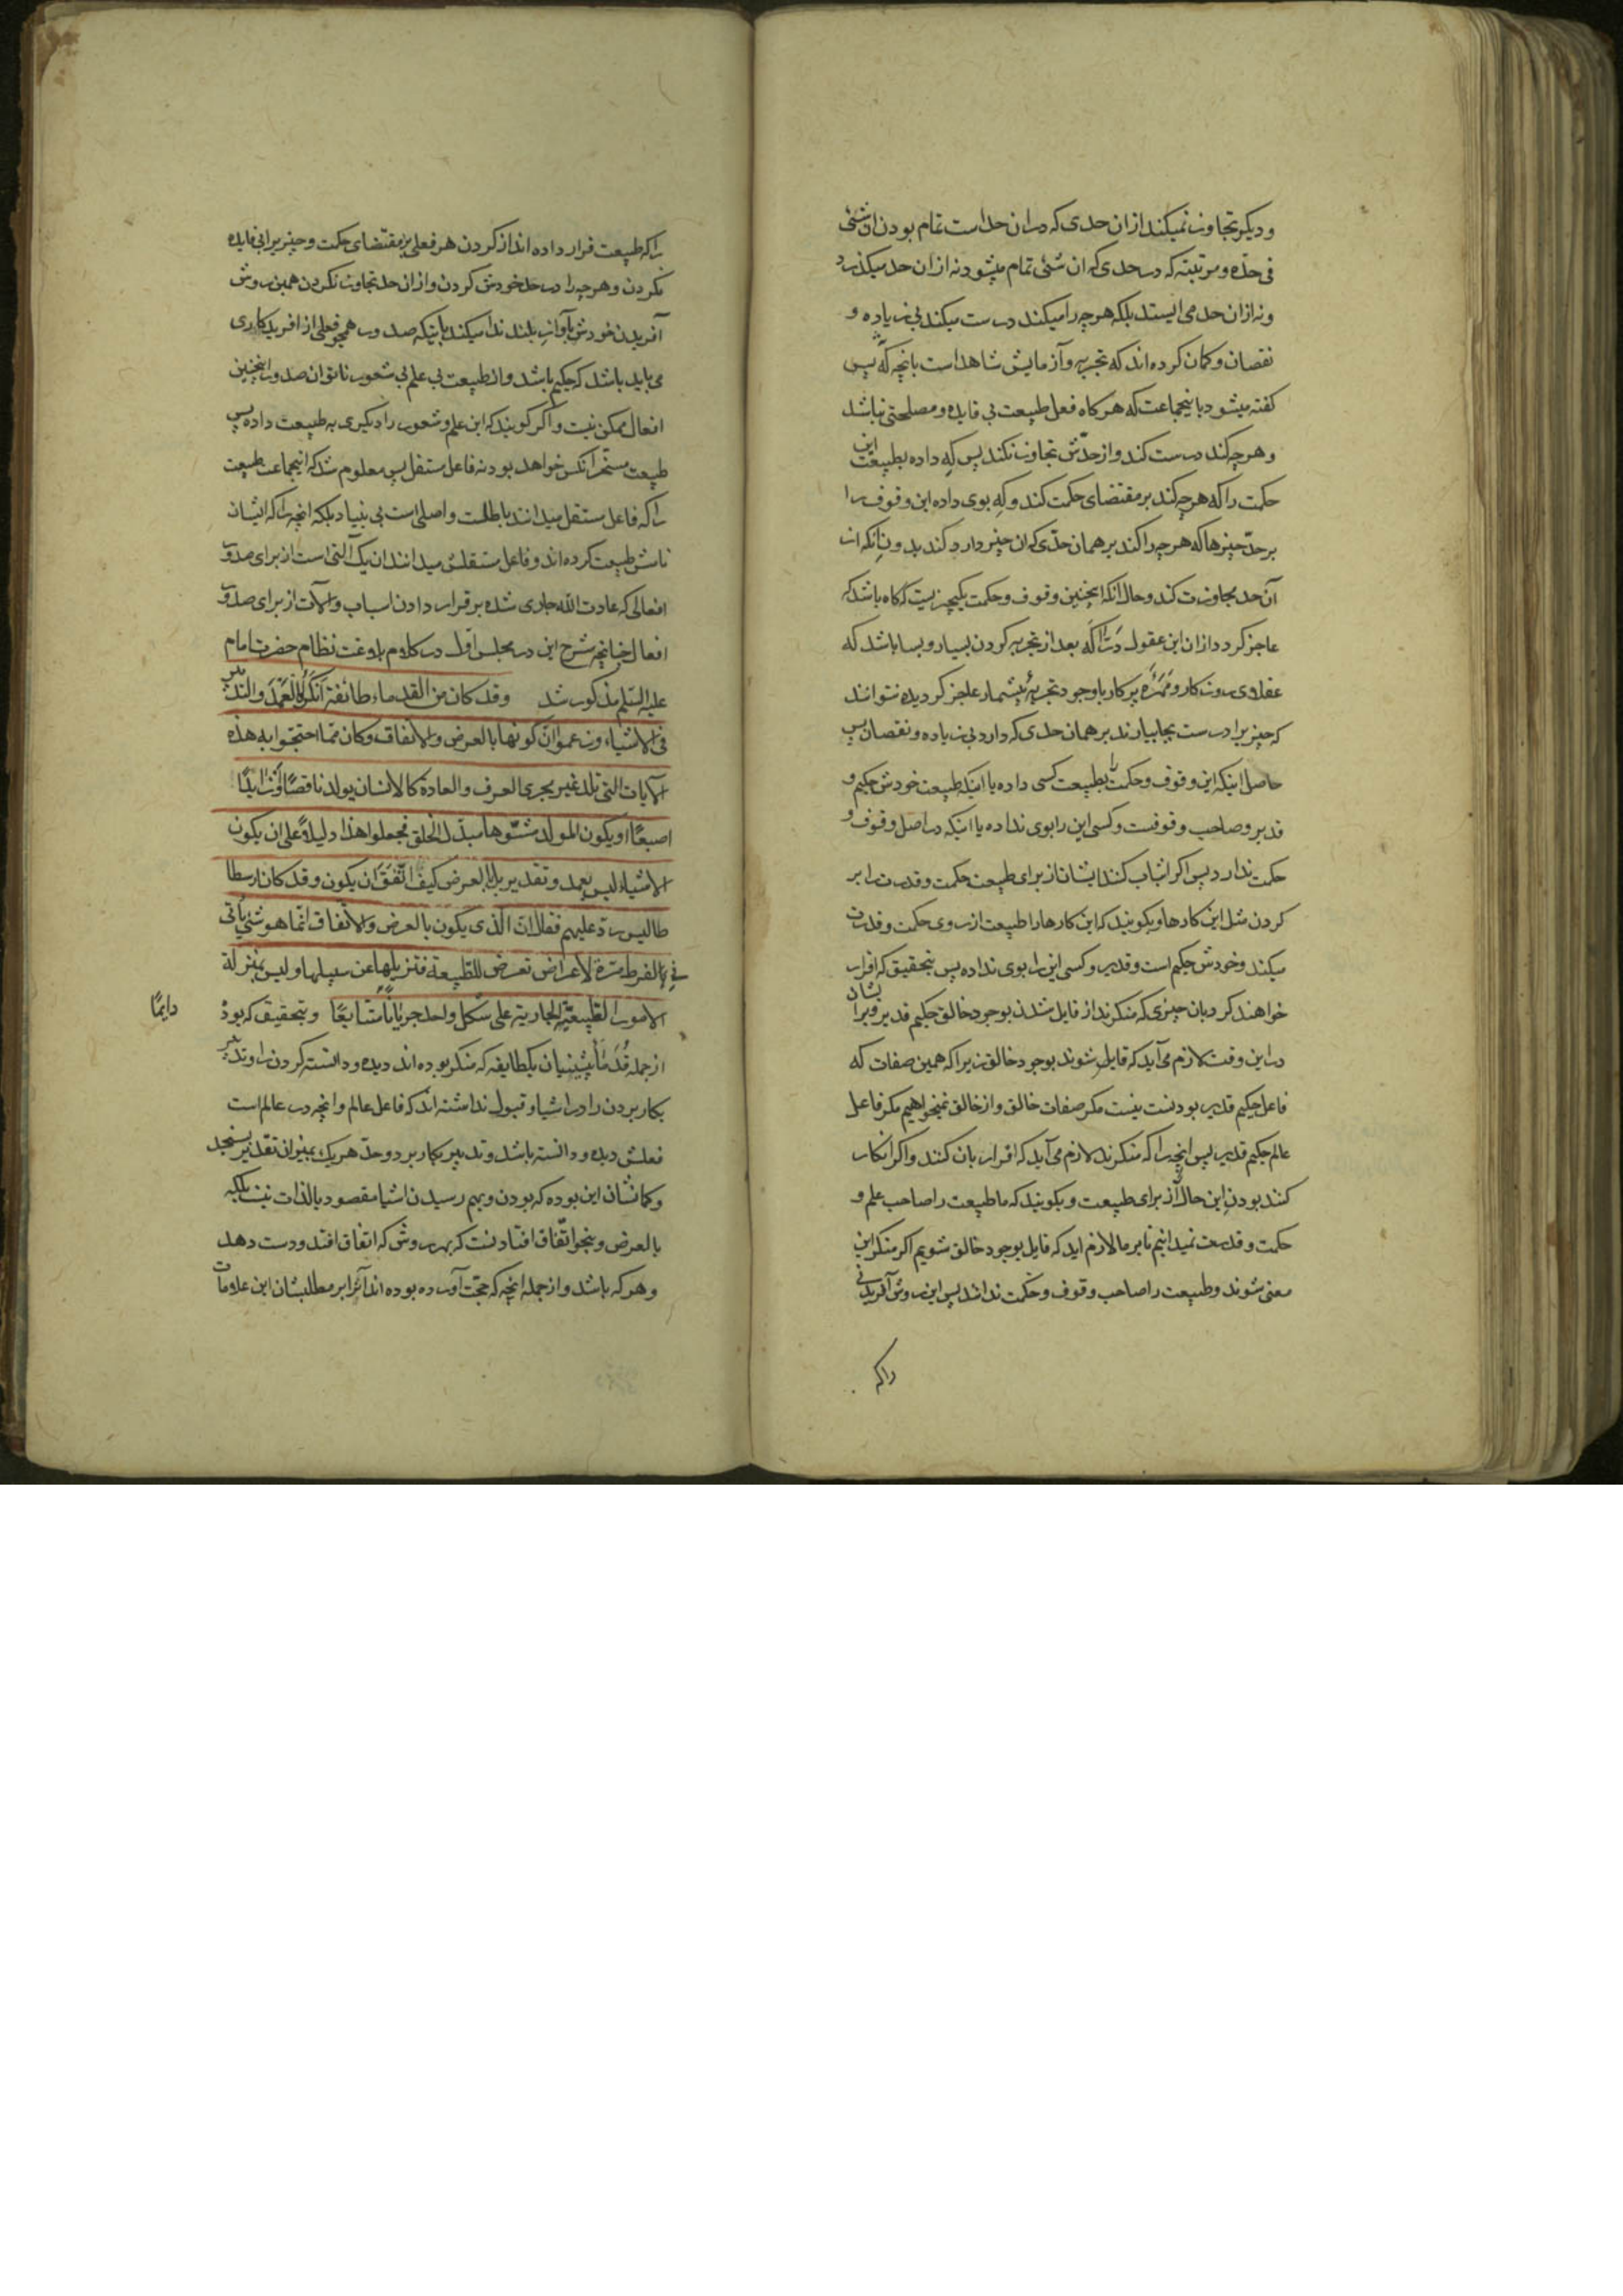 و دیکر تجاوز نمیکند از ان حدی که در ان حد است تمام بودن ان شئی
فی حدّه و مرتبته که در حدی که ان شئی تمام میشود نه از ان حد میکذرد
و نه از ان حد می ایستد بلکه هر چه را میکند درست میکند بی زیاده و
نقصان و کمان کرده اند که تجربه و آزمایش شاهد است بانچه که پس
کفته میشود باینجماعت که هر کاه فعل طبیعت بی فایده و مصلحتی نباشد
و هر چه کند درست کند و از حدّش تجاوز نکند پس که داده بطبیعت این
حکمت را که هر چه کند بر مقتضای حکمت کند و که بوی داده این وقوف را
بر حدّ چیزها که هر چه را کند بر همان حدّی که ان چیز دارد کند بدون انکه از
آن حد مجاوزت کند و حال انکه اینچنین وقوف و حکمت یکچیزیست که کاه باشد که
عاجز کردد از ان این عقول درّاکه بعد از تجربه کردن بسیار و بسا باشد که
عقلای روزکار و مَهَرَۀ پرکار با وجود تجربۀ بیشمار عاجز کردیده نتوانند
که چیزیرا درست بجا بیارند بر همان حدی که دارد بی زیاده و نقصان پس
حاصل اینکه این وقوف و حکمت را بطبیعت کسی داده یا اینکه طبیعت خودش حکیم و
قدیر و صاحب وقوفست و کسی این را بوی نداده یا اینکه در اصل وقوف و
حکمت ندارد پس اکر اثبات کنند ایشان از برای طبیعت حکمت و قدرت را بر
کردن مثل این کارها و بکویند که این کارها را طبیعت از روی حکمت و قدرت
میکند و خودش حکیم است و قدیر و کسی این را بوی نداده پس بتحقیق که اقرار
خواهند کرد بان چیزی که منکرند از قایل شدن بوجود خالق حکیم قدیر زیرا بشان
در این وقت لازم می آید که قایل شوند بوجود خالق زیرا که همین صفات که
فاعل حکیم قدیر بودنست نیست مکر صفات خالق و از خالق نمیخواهیم مکر فاعل
عالم حکیم قدیر پس انچه را که منکرند لازم می آید که اقرار بان کنند و اکر انکار
کنند بودن این حال از برای طبیعت و بکویند که ما طبیعت را صاحب علم و
حکمت و قدرت نمیدانیم تا بر ما لازم اید که قایل بوجود خالق شویم اکر منکر این
معنی شوند و طبیعت را صاحب وقوف و حکمت ندانند پس این روش آفریدنی
راکه
راکه طبیعت قرار داده اند از کردن هر فعلی بر مقتضای حکمت و چیزیرا بی فایده
نکردن و هر چه را در حد خودش کردن و از ان حد تجاوز نکردن همین روش
آفریدن خودش بآواز بلند ندا میکند باینکه صدور همچو فعلی از افریدکاری
می باید باشد که حکیم باشد و از طبیعت بی علم بی شعور ناتوان صدور اینچنین
افعال ممکن نیست و اکر کویند که این علم و شعور را دیکری به طبیعت داده پس
طبیعت مسخّر انکس خواهد بود نه فاعل مستقل پس معلوم شد که اینجماعت طبیعت
راکه فاعل مستقل میدانند باطلست و اصلی است بی بنیاد بلکه انچه را که ایشان
نامش طبیعت کرده اند و فاعل مستقلش میدانند ان یک آلتی است از برای صدور
افعالی که عادت الله جاری شده بر قرار دادن اسباب و الآت از برای صدور
افعال چنانچه شرح این در مجلس اوّل در کلام بلاغت نظام حضرت امام
علیه السّلم مذکور شد وقد کان من القدماء طائفة اَنکَرُوا العَمَدَ والتدبیر
فی الاشیاء وزعموا انّ کونها بالعرض والاتفاق وکان ممّا احتجّوا به هذه
الآیات التی تلد غیر مجری العرف والعادة کالانسان یولد ناقصًا او زایدًا
اصبعًا او یکون المولد مشوّها مبدّل الخلق فجعلوا هذا دلیلاً علی ان یکون
الاشیاء لیس بعمد وتقدیر بل بالعرض کیف اتّفَقَ ان یکون وقد کان ارسطا
طالیس ردّ علیهم فقال انّ الّذی یکون بالعرض والاتفاق انّما هو شئ یأتی
فی الفرط مرّة لاعراض تعرض للطّبیعة فتزیلها عن سبیلها ولیس بمنزلة
الامور الطّبیعیّة الجاریة علی شکل واحد جریانًا متتابعًا و بتحقیق که بود
دایمًا
از جمله قُدَمَاء پیشینیان یکطایفه که منکر بوده اند دیده و دانسته کردن را و تدبیر
بکار بردن را در اشیا و قبول نداشته اند که فاعل عالم و انچه در عالم است
فعلش دیده و دانسته باشد و تدبیر بکار برد و حدّ هر یک بمیزان تقدیر بسنجد
و کمانشان این بوده که بودن و بهم رسیدن اشیا مقصود بالذات نیست بلکه
بالعرض و بنحو اتّفاق افتادنست که بهر روش که اتفاق افتد و دست دهد
و هر که باشد و از جمله انچه که حجّت آورده بوده اند آنرا بر مطلبشان این علامات